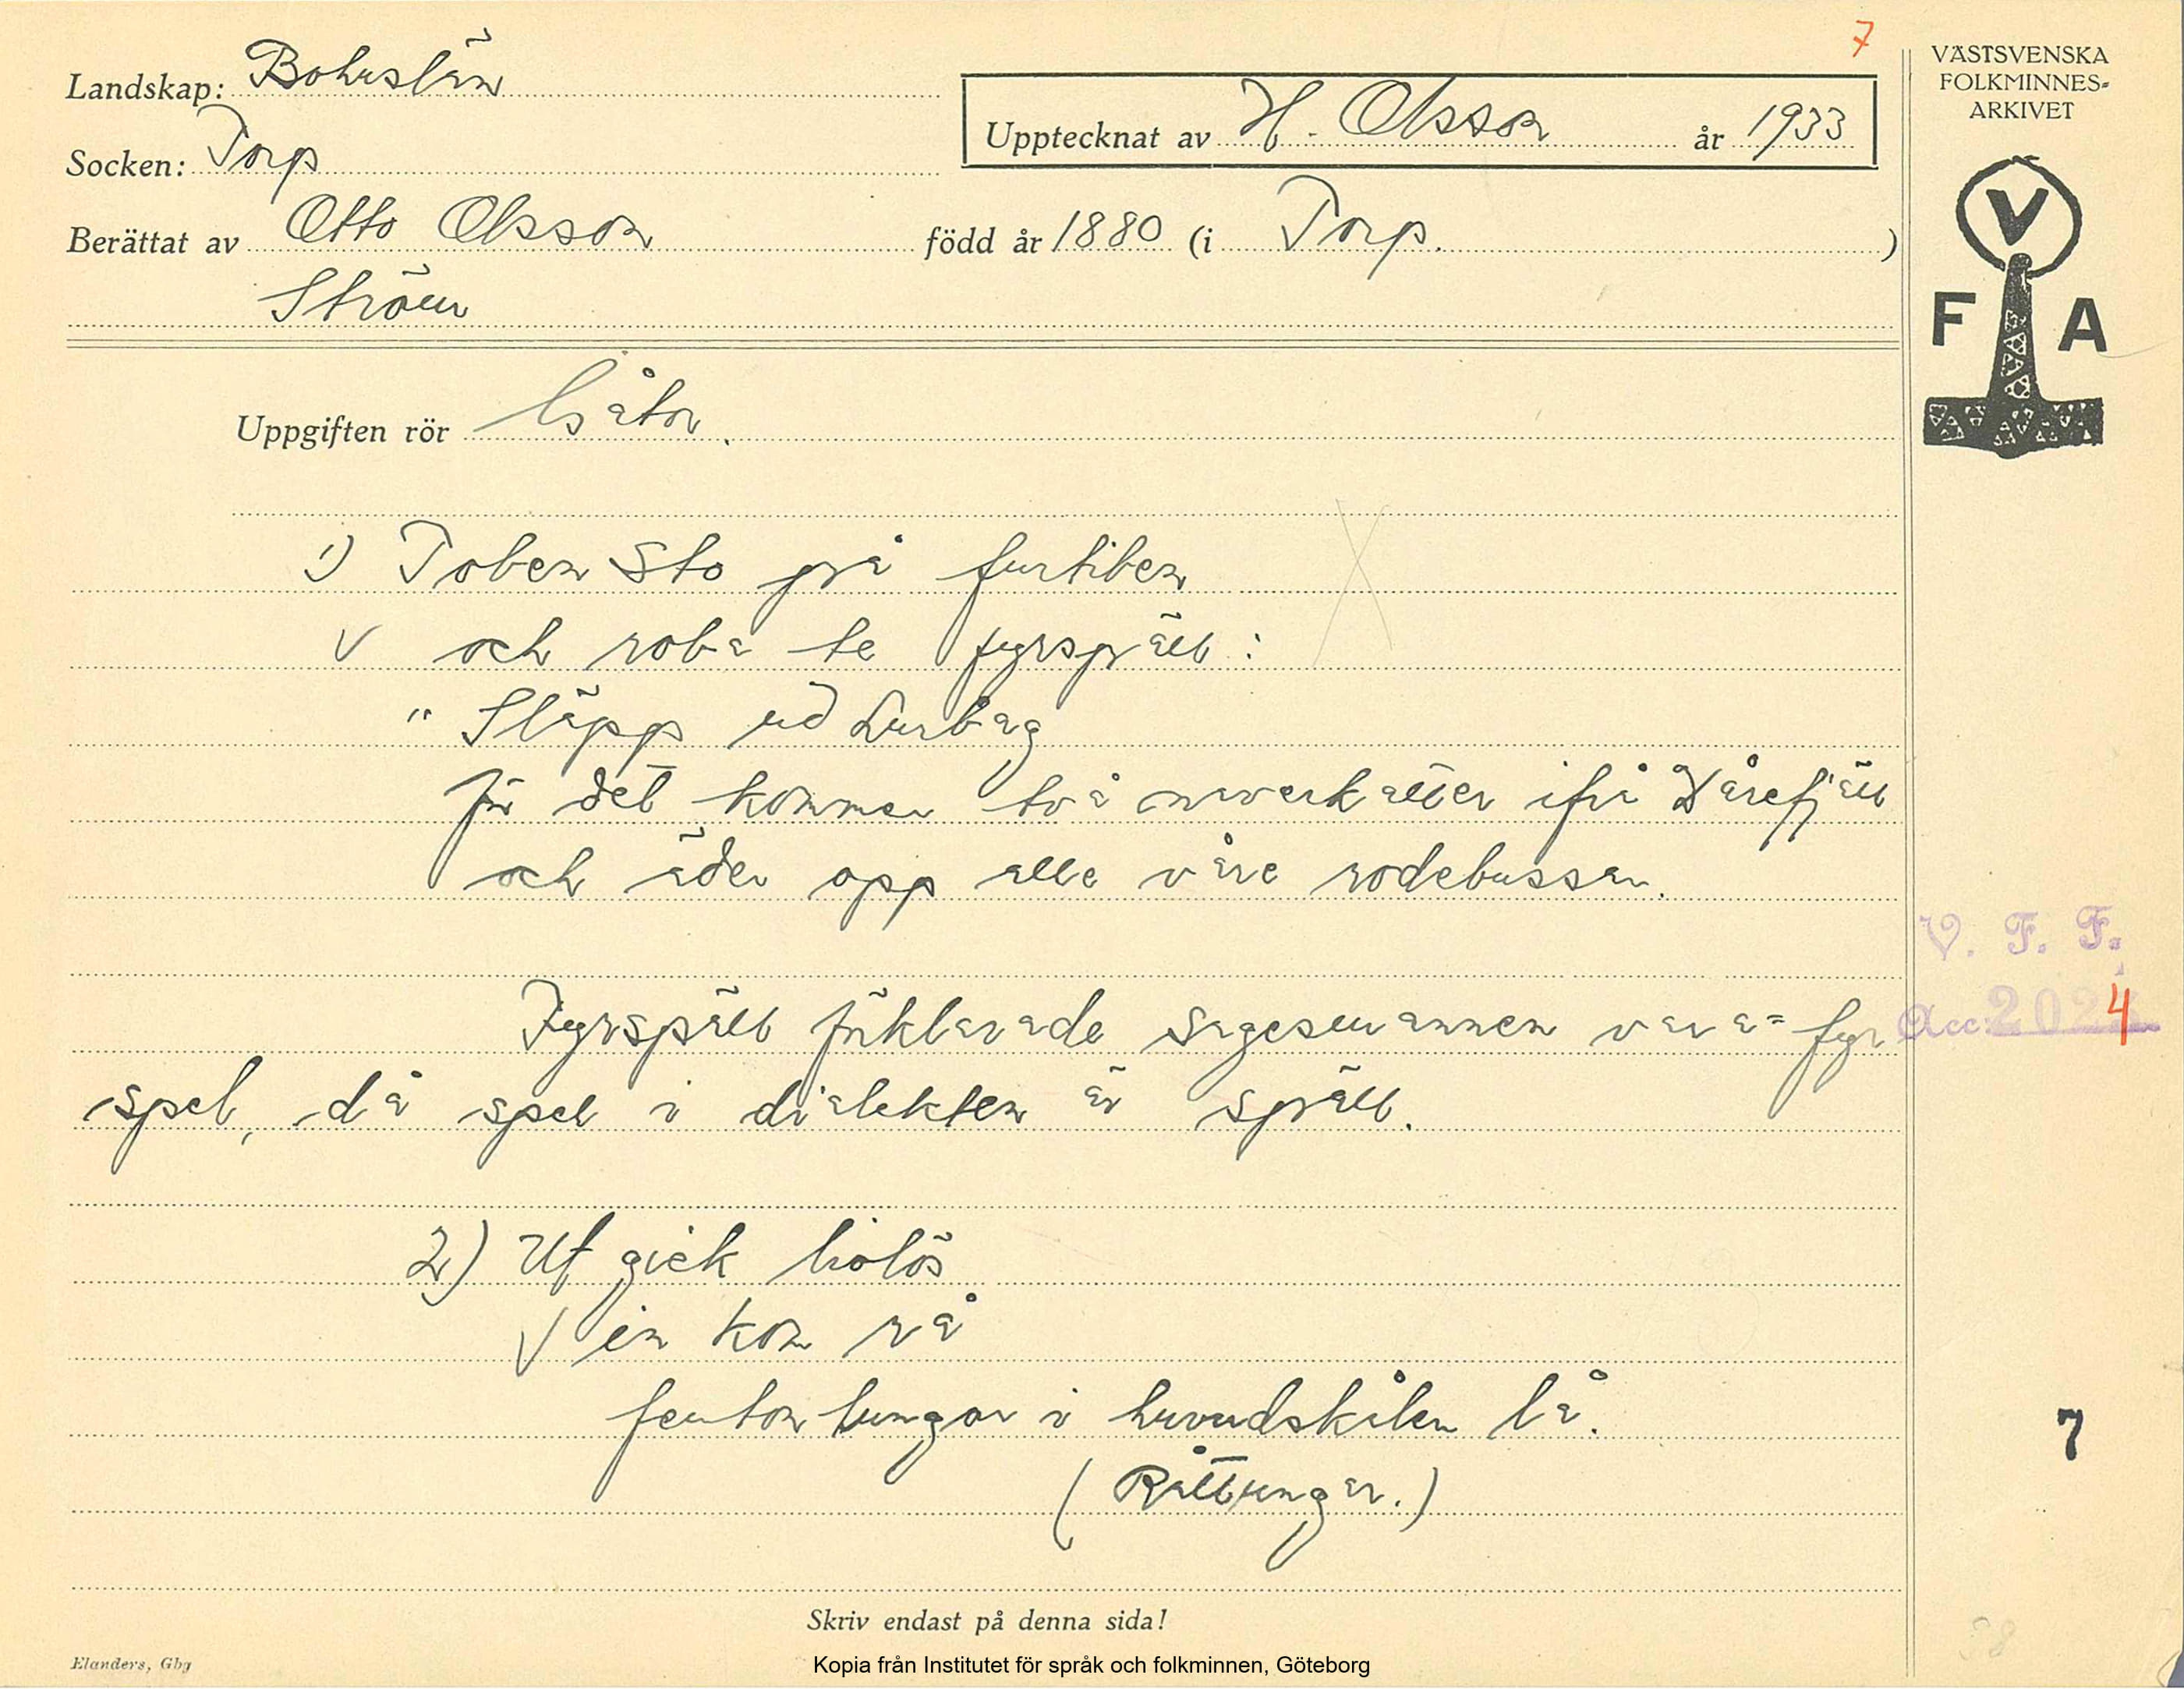 7
Landskap: Bohuslän
Upptecknat av H. Olsson år 1933
Socken: Torp
Berättat av Otto Olsson född år 1880 (i Torp.)
Ström
VÄSTSVENSKA
FOLKMINNES-
ARKIVET
V
F A
Uppgiften rör Gåtor.
1) Toben sto på furtiben
och roba te fyrspäll:
"Släpp ud Lurbag
för det kommer två ifrå Dårefjäll
och äder opp alle våre rodebussar.
Fyrspäll förklarade sagesmannen vara = fyr
spel, då spel i dialekten är späll.
2) Ut gick liolös
in kom rå
femton lungor i huvudskålen lå.
(Råttungar.)
V. F. F.
Acc. 2024
7
58
Skriv endast på denna sida!
Elanders, Gbg
Kopia från Institutet för språk och folkminnen, Göteborg